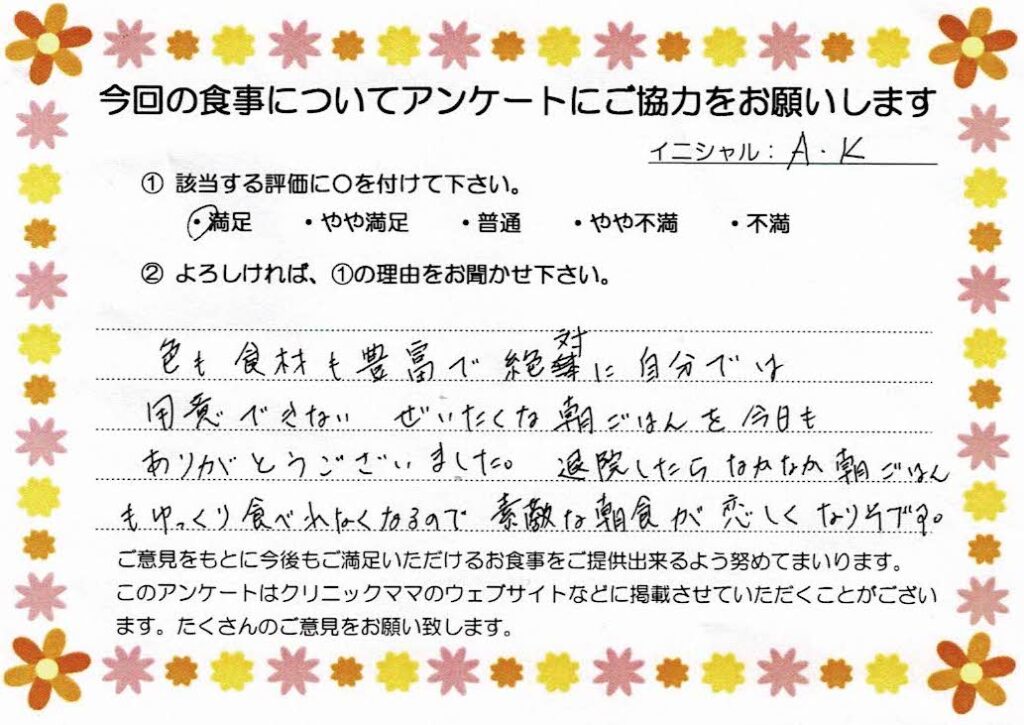 今回の食事についてアンケートにご協力をお願いします
イニシャル： A・K
① 該当する評価に○を付けて下さい。
・満足 ・やや満足 ・普通 ・やや不満 ・不満
② よろしければ、①の理由をお聞かせ下さい。
色も食材も豊富で絶対に自分では
用意できない ぜいたくな朝ごはんを今日も
ありがとうございました。 退院したらなかなか朝ごはん
もゆっくり食べれなくなるので 素敵な朝食が恋しくなりそうです。
ご意見をもとに今後もご満足いただけるお食事をご提供出来るよう努めてまいります。
このアンケートはクリニックママのウェブサイトなどに掲載させていただくことがござい
ます。たくさんのご意見をお願い致します。